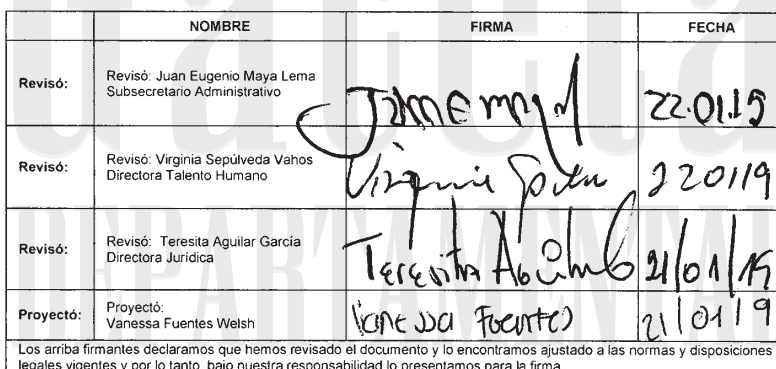 NOMBRE FIRMA FECHA
Revisó: Revisó: Juan Eugenio Maya Lema
Subsecretario Administrativo
22.01.19
Revisó: Revisó: Virginia Sepúlveda Vahos
Directora Talento Humano
Virginia
220119
Revisó: Revisó: Teresita Aguilar García
Directora Jurídica
Teresita Aguilar 21/01/19
Proyectó: Proyectó:
Vanessa Fuentes Welsh
Vanessa Fuentes 21/01/19
Los arriba firmantes declaramos que hemos revisado el documento y lo encontramos ajustado a las normas y disposiciones
legales vigentes y por lo tanto, bajo nuestra responsabilidad lo presentamos para la firma.
DEPARTAMENTAL